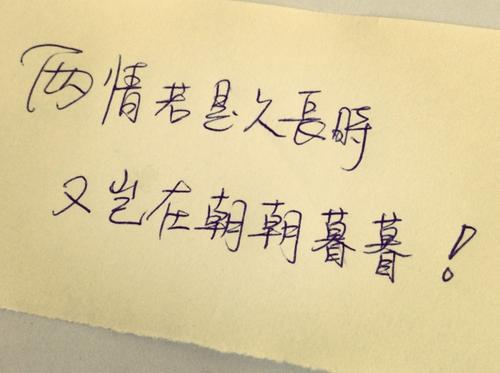 两情若是久長時
又岂在朝朝暮暮！